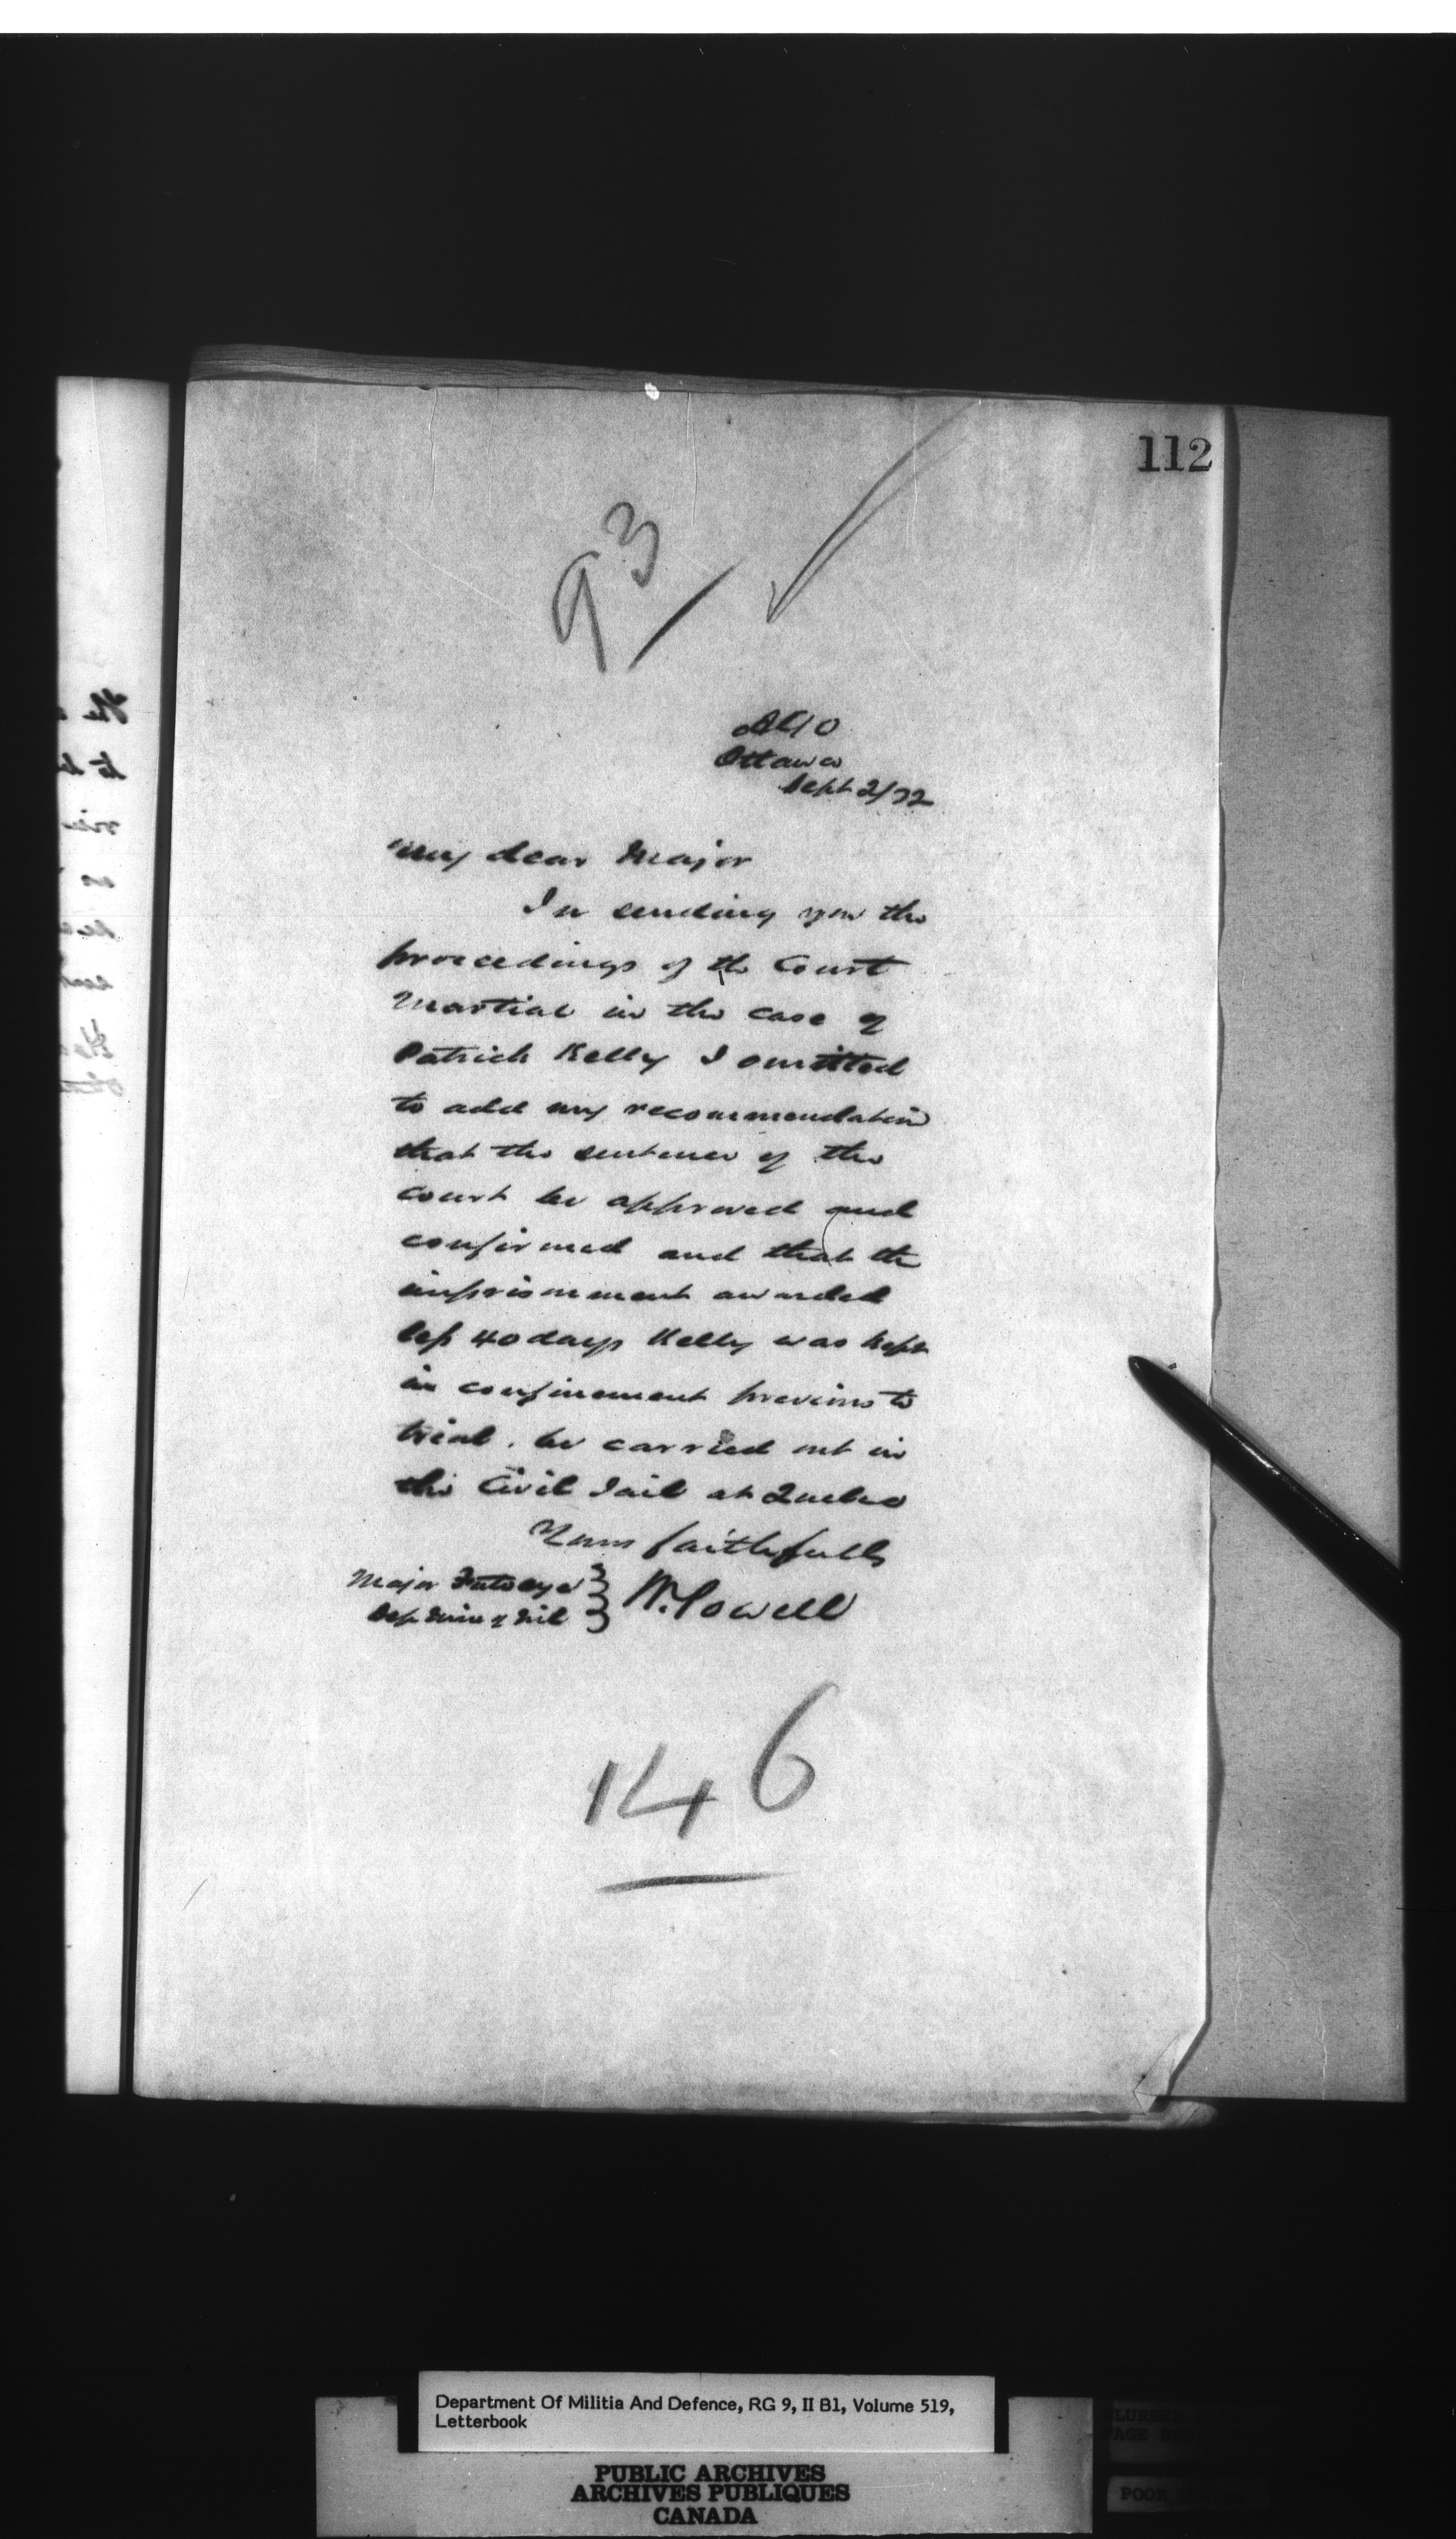 112
93
AGO
Ottawa
Sept 2/72
My dear Major
In sending you the
proceedings of the Court
Martial in the case of
Patrick Kelly I omitted
to add my recommendation
that the sentence of the
court be approved and
confirmed and that the
imprisonment awarded
less 40 days Kelly was kept
in confinement previous to
trial. be carried out in
the Civil Jail at Quebec
Yours faithfully
Major Futvoye
W. Powell
Dep Min of Mil
146
Department Of Militia And Defence, RG 9, II B1, Volume 519,
Letterbook
PUBLIC ARCHIVES
ARCHIVES PUBLIQUES
CANADA
POOR